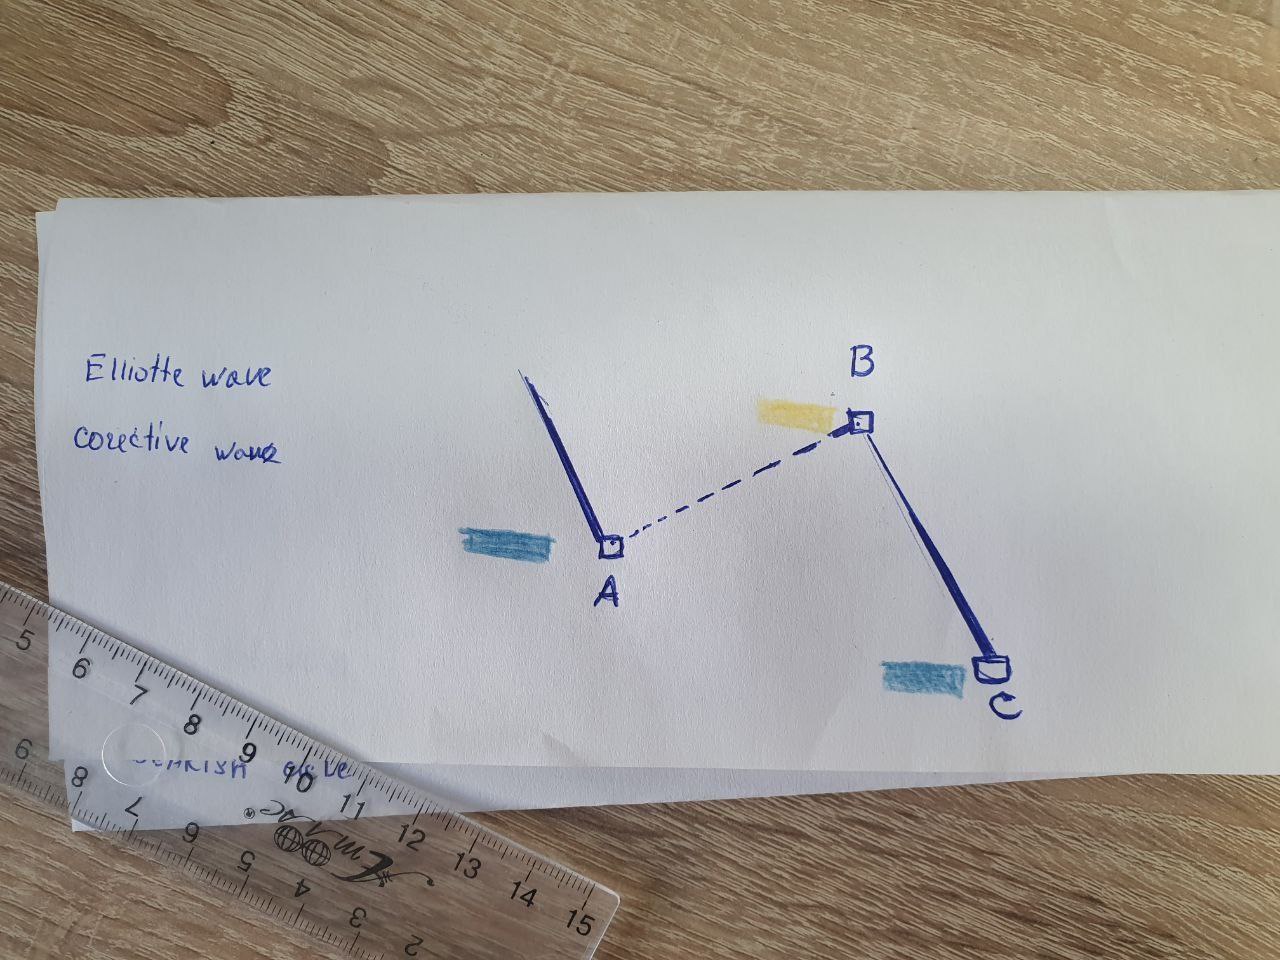 Elliotte wave
corective wave
B
A
C
5 6 7 8 9 10 11 12 13 14 15
6 8 7 6 5 4 3 2